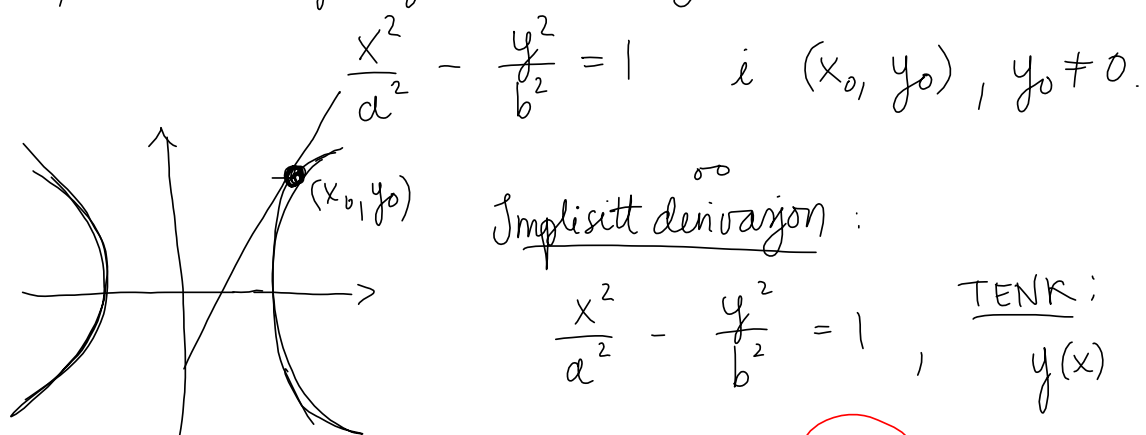 x²/a² - y²/b² = 1 i (x₀, y₀), y₀ ≠ 0.
(x₀, y₀)
Implisitt derivasjon :
x²/a² - y²/b² = 1 , TENK:
y(x)